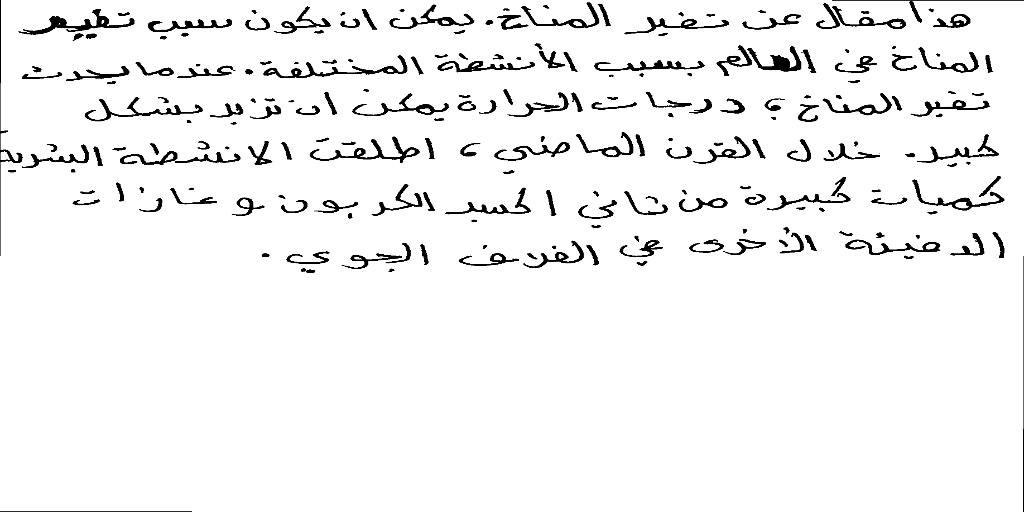 هذا مقال عن تغير المناخ. يمكن ان يكون سبب تغيير
المناخ في العالم بسبب الأنشطة المختلفة. عندما يحدث
تغير المناخ ؛ درجات الحرارة يمكن ان تزيد بشكل
كبير. خلال القرن الماضي ، اطلقت الانشطة البشرية
كميات كبيرة من ثاني اكسيد الكربون و غازات
الدفيئة الأخرى في الغلاف الجوي .